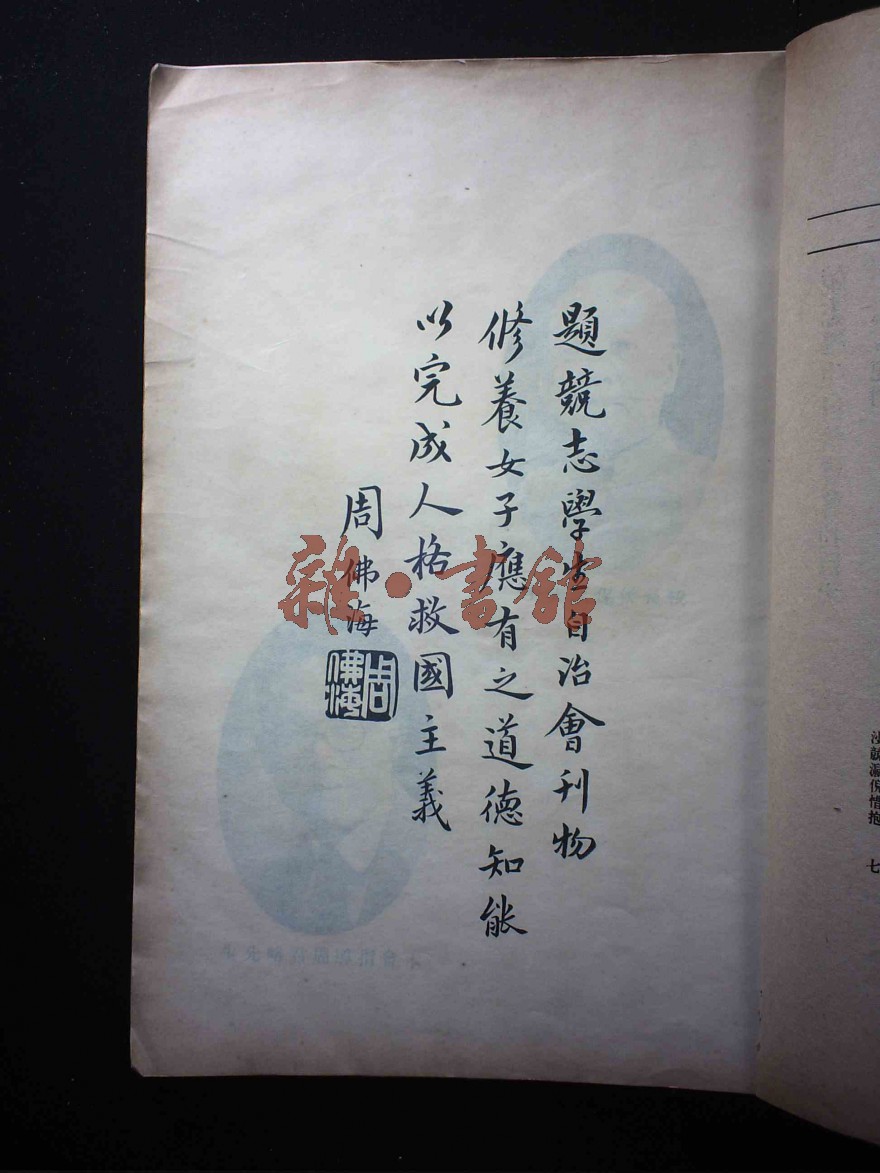 題競志學生自治會刊物
修養女子應有之道德知能
以完成人格救國主義
周佛海
周佛海
雜·書館
七